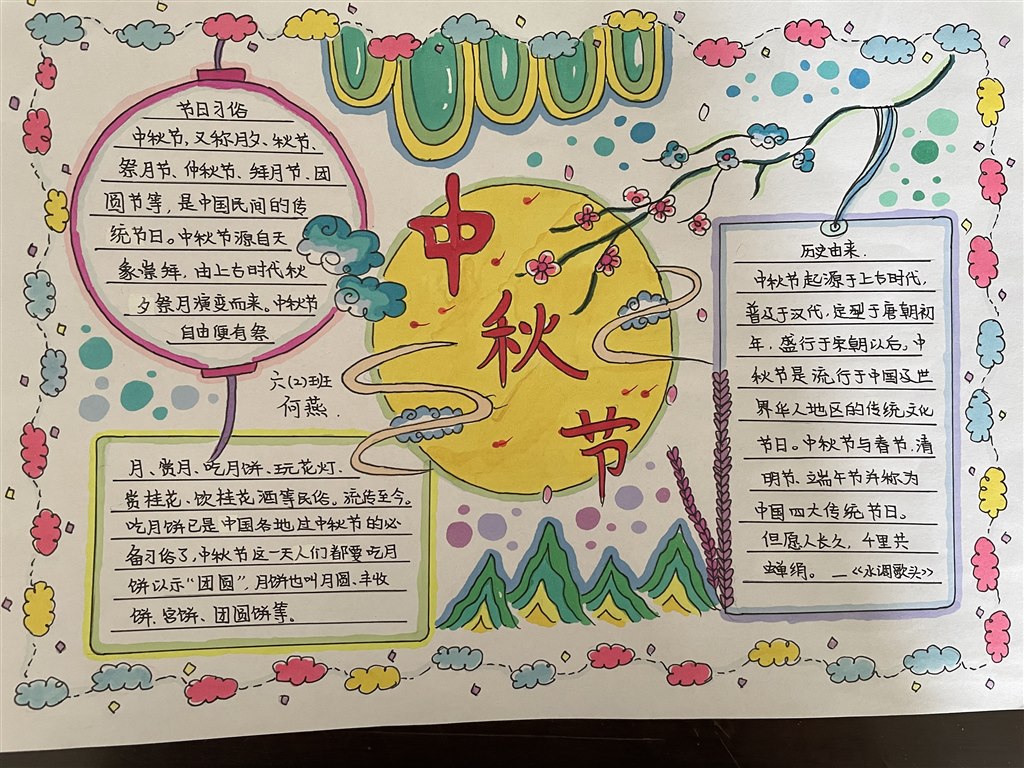 中秋节
节日习俗
中秋节,又称月夕、秋节、
祭月节、仲秋节、拜月节、团
圆节等,是中国民间的传
统节日。中秋节源自天
象崇拜,由上古时代秋
夕祭月演变而来。中秋节
自由便有祭
月、赏月、吃月饼、玩花灯、
赏桂花、饮桂花酒等民俗。流传至今。
吃月饼已是中国各地过中秋节的必
备习俗了,中秋节这一天人们都要吃月
饼以示“团圆”,月饼也叫月圆、丰收
饼、宫饼、团圆饼等。
六(2)班
何燕.
历史由来.
中秋节起源于上古时代,
普及于汉代,定型于唐朝初
年,盛行于宋朝以后。中
秋节是流行于中国及世
界华人地区的传统文化
节日。中秋节与春节、清
明节、端午节并称为
中国四大传统节日。
但愿人长久,千里共
婵娟。—《水调歌头》